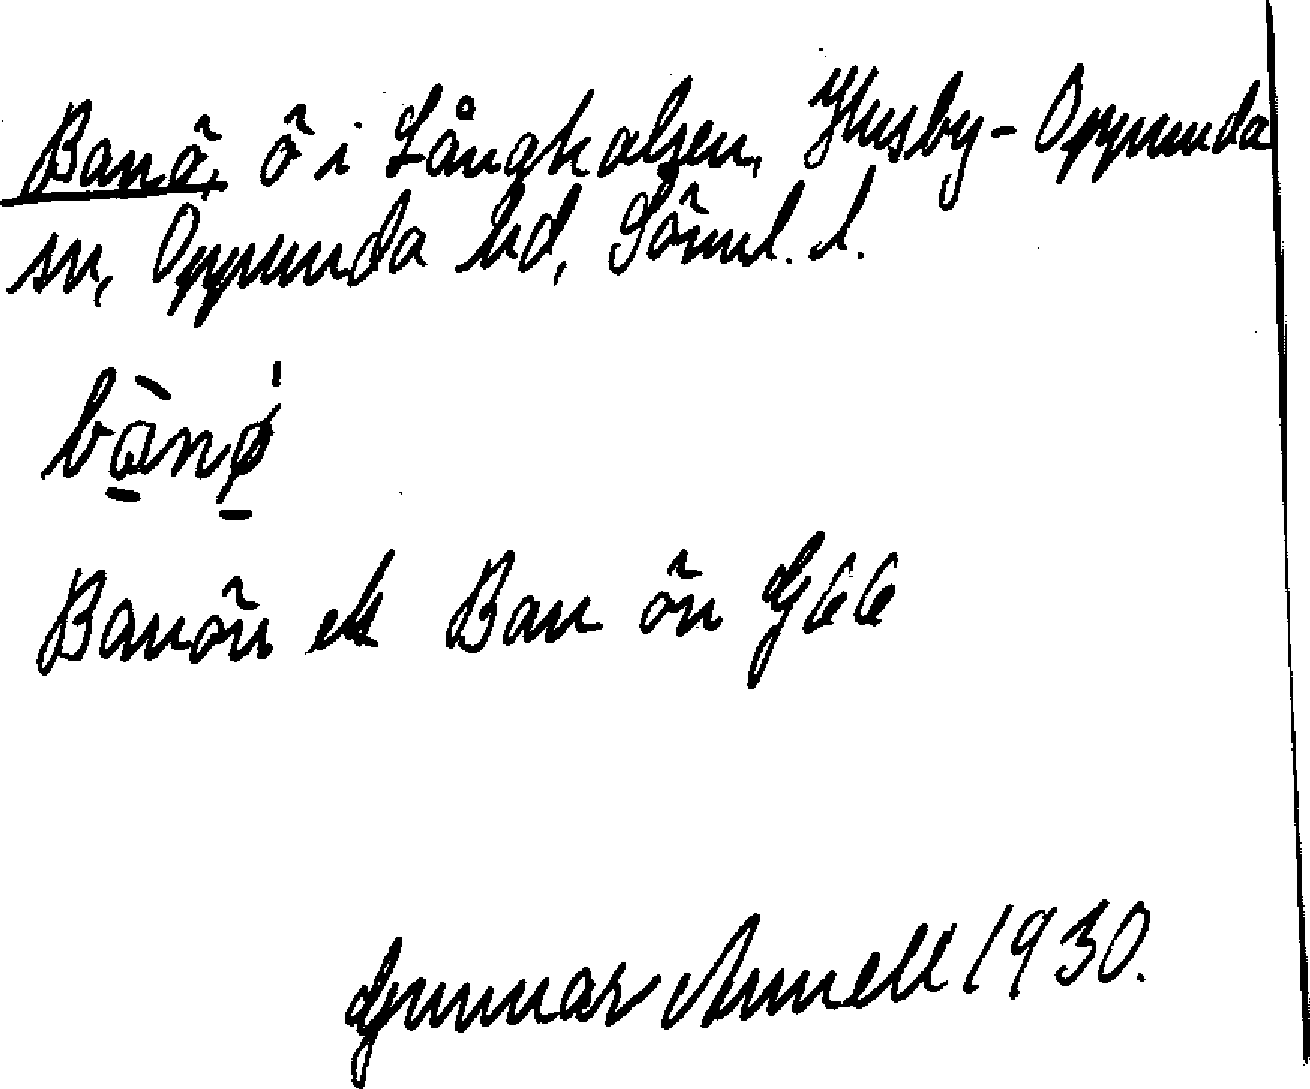 Banö, ö i Långhalsen, Husby-Oppunda
sn, Oppunda hd, Söml. l.
bànø̱'
Banön ek Ban ön G66
Gunnar Annell 1930.